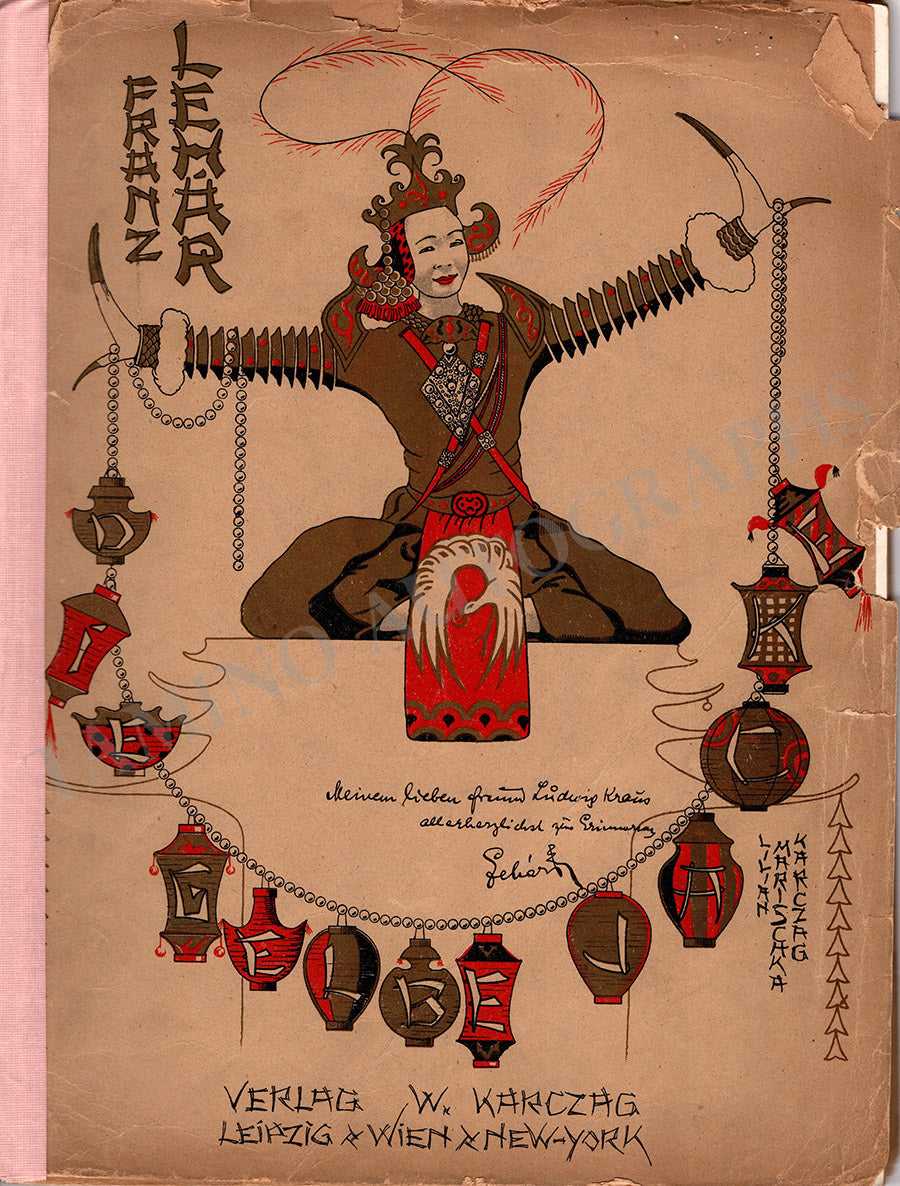 FRANZ
LEHÁR
DIE
GELBE
JACKE
Meinem lieben Freund Ludwig Kraus
allerherzlichst zur Erinnerung
Lehár
LILIAN
MARISCHKA
KARCZAG
VERLAG W. KARCZAG
LEIPZIG & WIEN & NEW-YORK
TAMINO AUTOGRAPHS